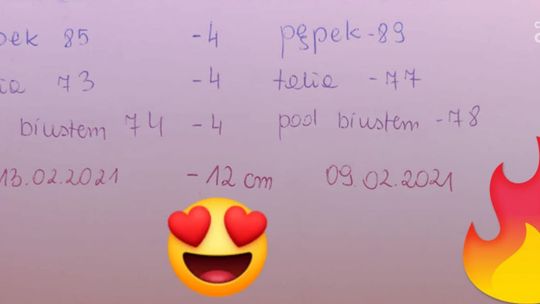 pek 85 -4 pępek - 89
ia 73 -4 talia - 77
biustem 74 -4 pod biustem - 78
13.02.2021 - 12 cm 09.02.2021